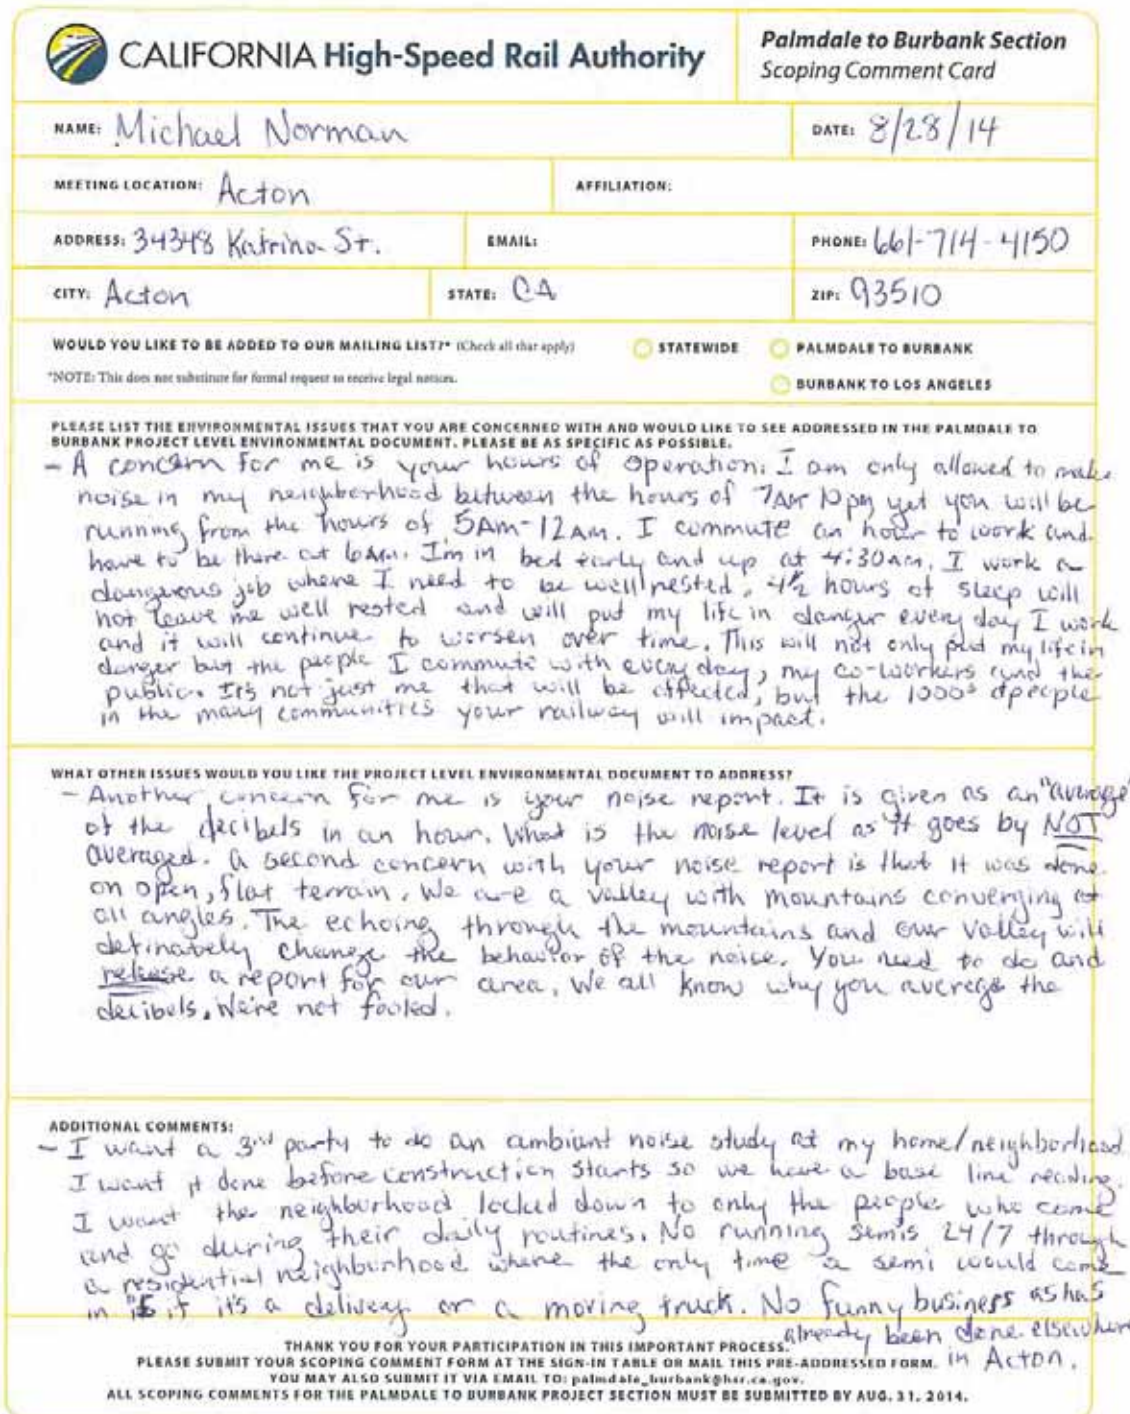 CALIFORNIA High-Speed Rail Authority
Palmdale to Burbank Section
Scoping Comment Card
NAME: Michael Norman
DATE: 8/28/14
MEETING LOCATION: Acton
AFFILIATION:
ADDRESS: 34348 Katrina St.
EMAIL:
PHONE: 661-714-4150
CITY: Acton
STATE: CA
ZIP: 93510
WOULD YOU LIKE TO BE ADDED TO OUR MAILING LIST?* (Check all that apply)
STATEWIDE
PALMDALE TO BURBANK
*NOTE: This does not substitute for formal request to receive legal notices.
BURBANK TO LOS ANGELES
PLEASE LIST THE ENVIRONMENTAL ISSUES THAT YOU ARE CONCERNED WITH AND WOULD LIKE TO SEE ADDRESSED IN THE PALMDALE TO
BURBANK PROJECT LEVEL ENVIRONMENTAL DOCUMENT. PLEASE BE AS SPECIFIC AS POSSIBLE.
- A concern for me is your hours of operation. I am only allowed to make
noise in my neighborhood between the hours of 7AM 10pm yet you will be
running from the hours of 5AM-12AM. I commute an hour to work and
have to be there at 6AM. I'm in bed early and up at 4:30am. I work a
dangerous job where I need to be well rested. 4½ hours of sleep will
not leave me well rested and will put my life in danger every day I work
and it will continue to worsen over time. This will not only put my life in
danger but the people I commute with every day, my co-workers and the
public. It's not just me that will be affected, but the 1000s of people
in the many communities your railway will impact.
WHAT OTHER ISSUES WOULD YOU LIKE THE PROJECT LEVEL ENVIRONMENTAL DOCUMENT TO ADDRESS?
- Another concern for me is your noise report. It is given as an "average"
of the decibels in an hour. What is the noise level as it goes by NOT
averaged. A second concern with your noise report is that it was done
on open, flat terrain. We are a valley with mountains converging at
all angles. The echoing through the mountains and our valley will
definately change the behavior of the noise. You need to do and
release a report for our area. We all know why you average the
decibels. We're not fooled.
ADDITIONAL COMMENTS:
- I want a 3rd party to do an ambiant noise study at my home/neighborhood.
I want it done before construction starts so we have a base line reading.
I want the neighborhood locked down to only the people who come
and go during their daily routines. No running semis 24/7 through
a residential neighborhood where the only time a semi would come
in is if it's a delivery or a moving truck. No funny business as has
already been done elsewhere
in Acton.
THANK YOU FOR YOUR PARTICIPATION IN THIS IMPORTANT PROCESS.
PLEASE SUBMIT YOUR SCOPING COMMENT FORM AT THE SIGN-IN TABLE OR MAIL THIS PRE-ADDRESSED FORM.
YOU MAY ALSO SUBMIT IT VIA EMAIL TO: palmdale_burbank@hsr.ca.gov.
ALL SCOPING COMMENTS FOR THE PALMDALE TO BURBANK PROJECT SECTION MUST BE SUBMITTED BY AUG. 31, 2014.